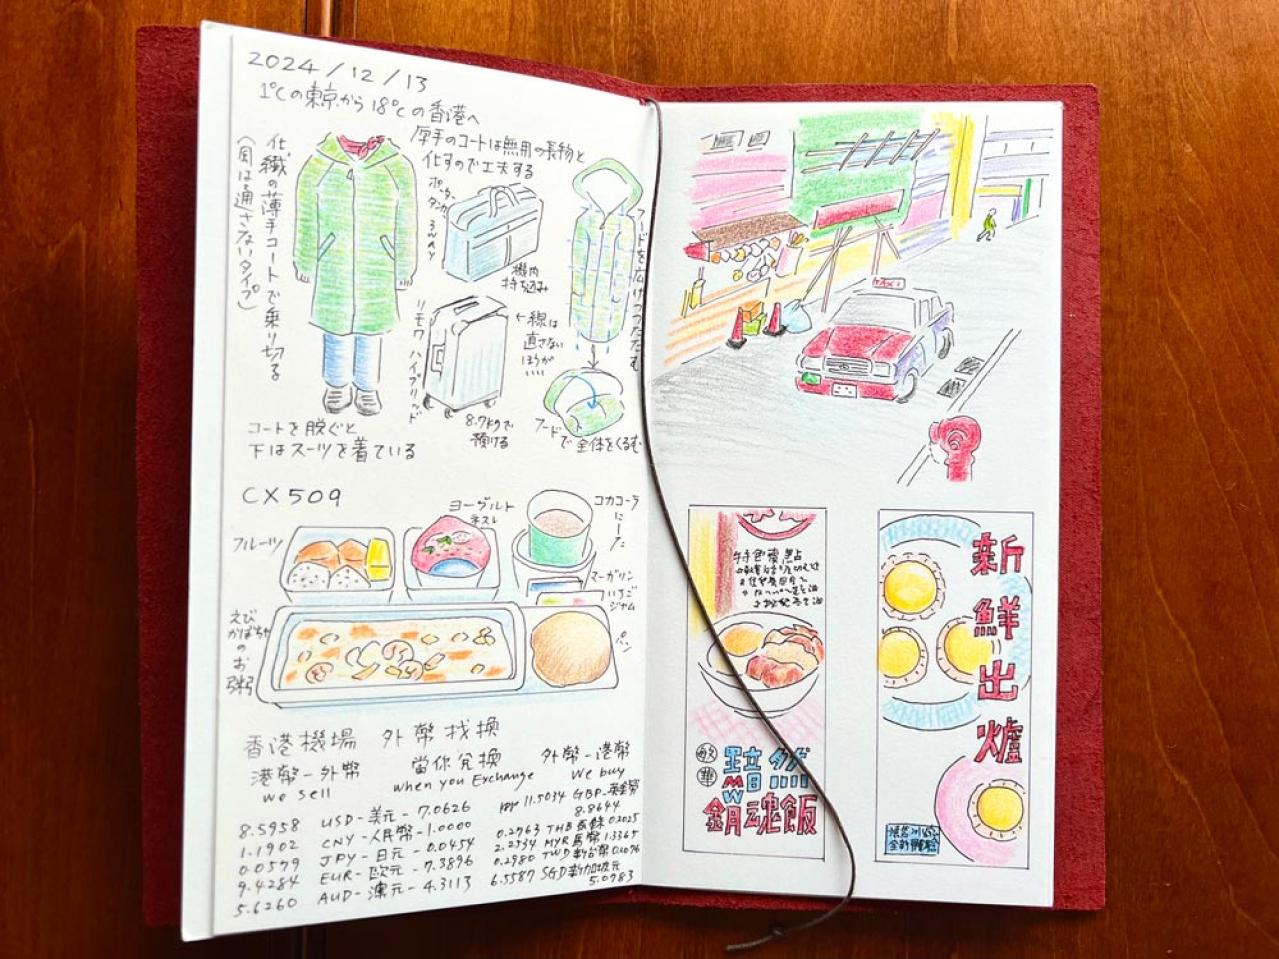 2024/12/13
1℃の東京から18℃の香港へ
厚手のコートは無用の長物と
化すので工夫する
化繊の薄手コートで乗り切る
(風は通さないタイプ)
ポーター
タンカー
3WAY
機内
持ち込み
フードを広げつつたたむ
リモワ ハイブリッド
←線は
直さない
ほうが
いい
8.7kgで
預ける
フードで全体をくるむ
コートを脱ぐと
下はスーツを着ている
CX509
フルーツ
ヨーグルト
ネスレ
コカコーラ
にした
マーガリン
いちご
ジャム
えび
かぼちゃ
の
お
粥
パン
香港機場 外幣找換
港幣-外幣 當你兌換 外幣-港幣
we sell when you Exchange We buy
8.5958 USD-美元-7.0626
11.5034 GBP-英金鎊
8.8644
1.1902 CNY-人民幣-1.0000
0.2763 THB 0.2025
0.0579 JPY-日元-0.0454
2.2534 MYR 馬幣 1.3365
9.4284 EUR-欧元-7.3896
0.2980 TWD 新台幣
5.6260 AUD-澳元-4.3113
6.5587 SGD 新加坡元
5.0783
TAXI
特色
敏華
銷魂飯
新鮮出爐